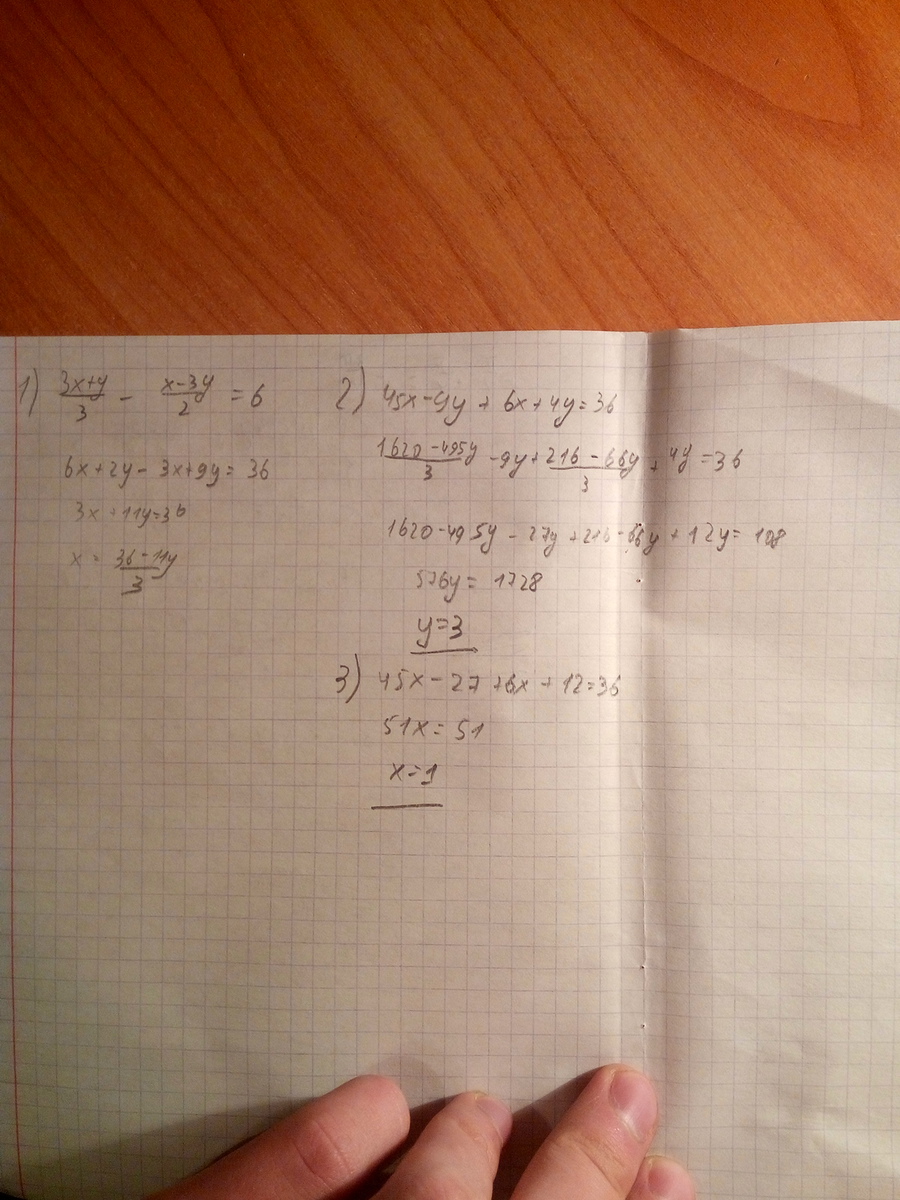 1) (3x+y)/3 - (x-3y)/2 = 6
6x+2y-3x+9y=36
3x+11y=36
x = (36-11y)/3
2) 45x-9y+6x+4y=36
(1620-495y)/3 -9y+(216-66y)/3+4y=36
1620-495y-27y+216-66y+12y=108
576y=1728
y=3
3) 45x-27+6x+12=36
51x=51
x=1